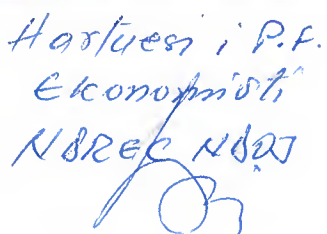 Hartuesi i P.F.
Ekonomisti
NDREC NDOJ